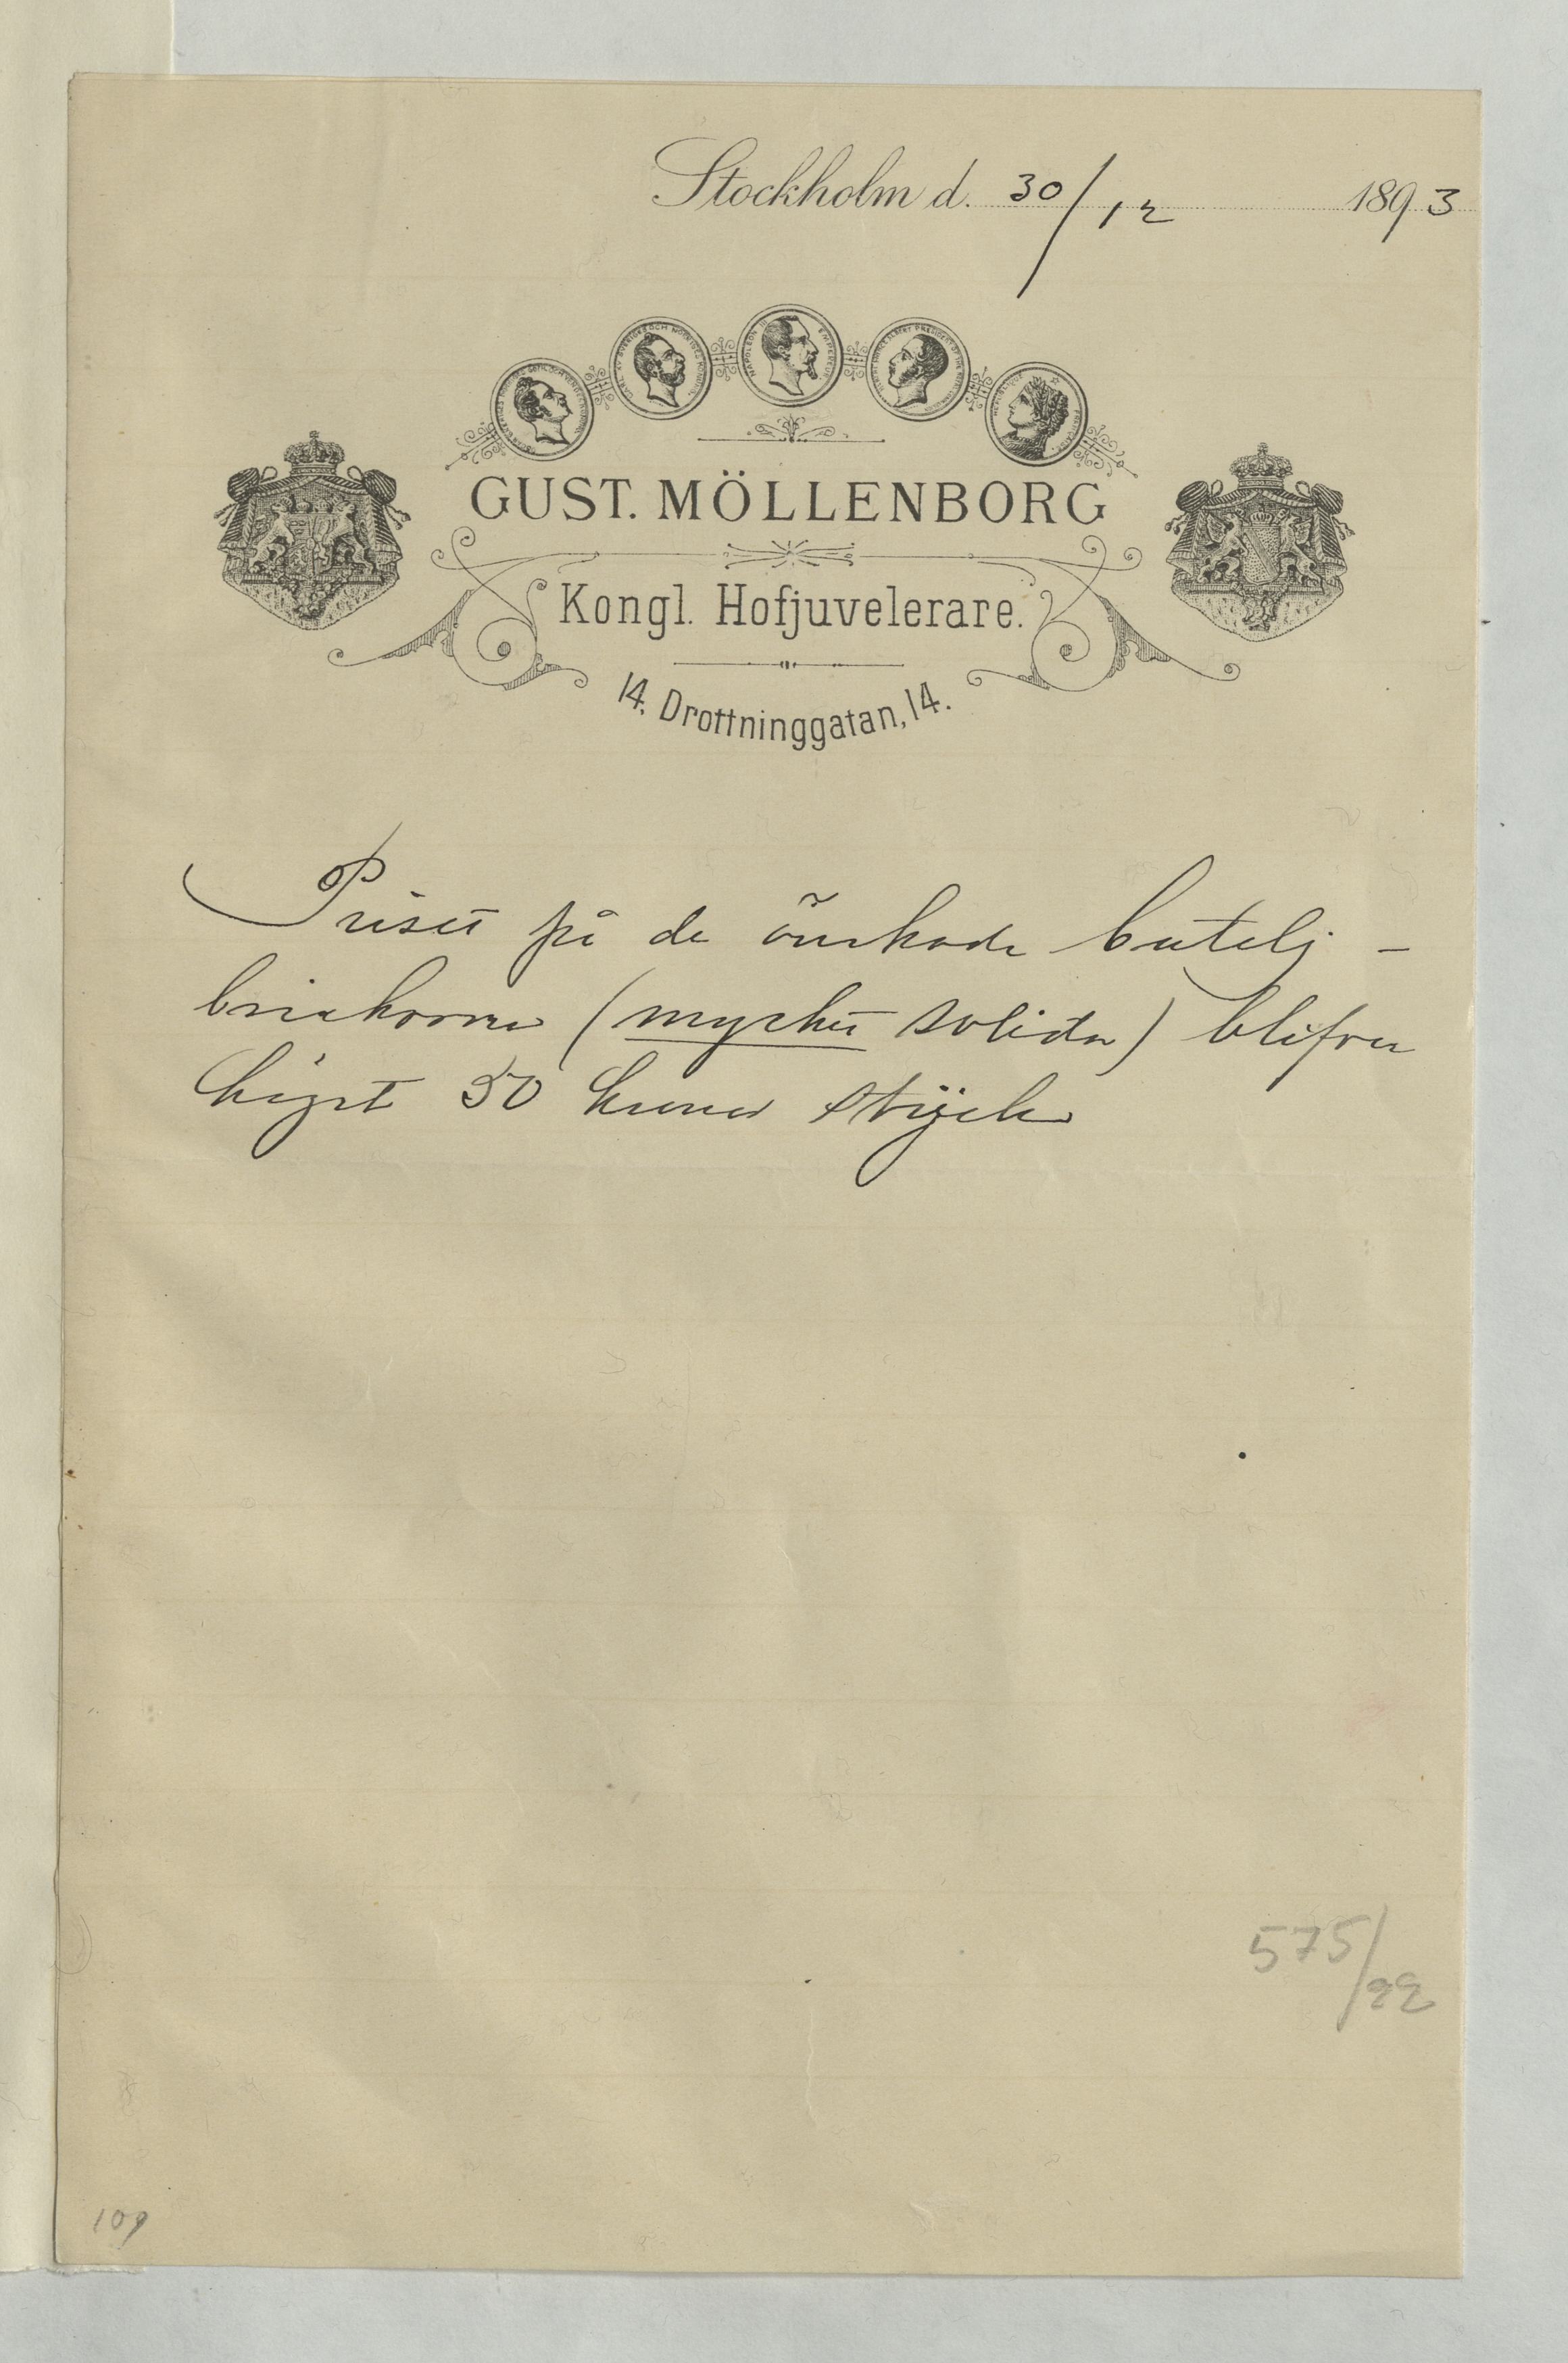 Stockholm d. 30/12 1893
GUST. MÖLLENBORG
Kongl. Hofjuvelerare.
14. Drottninggatan, 14.
Priset på de önskade butelj-
brickorna (mycket solida) blifver
högst 50 kronor stycke
575/22
109